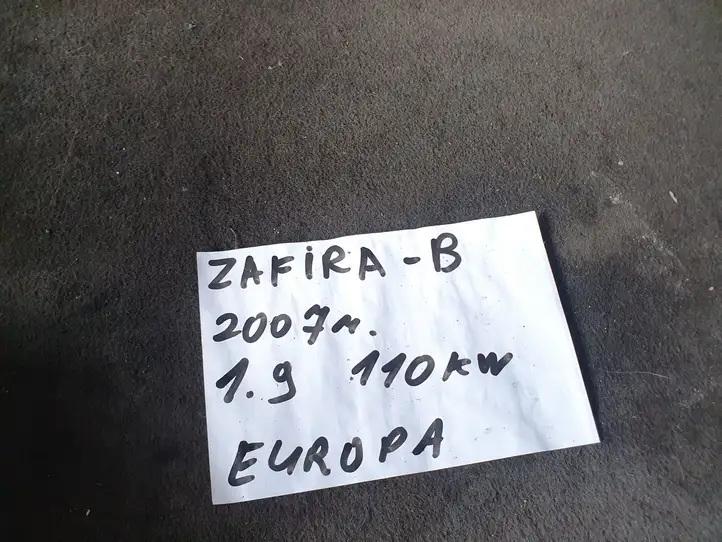 ZAFIRA-B
2007м.
1.9 110kw
EUROPA